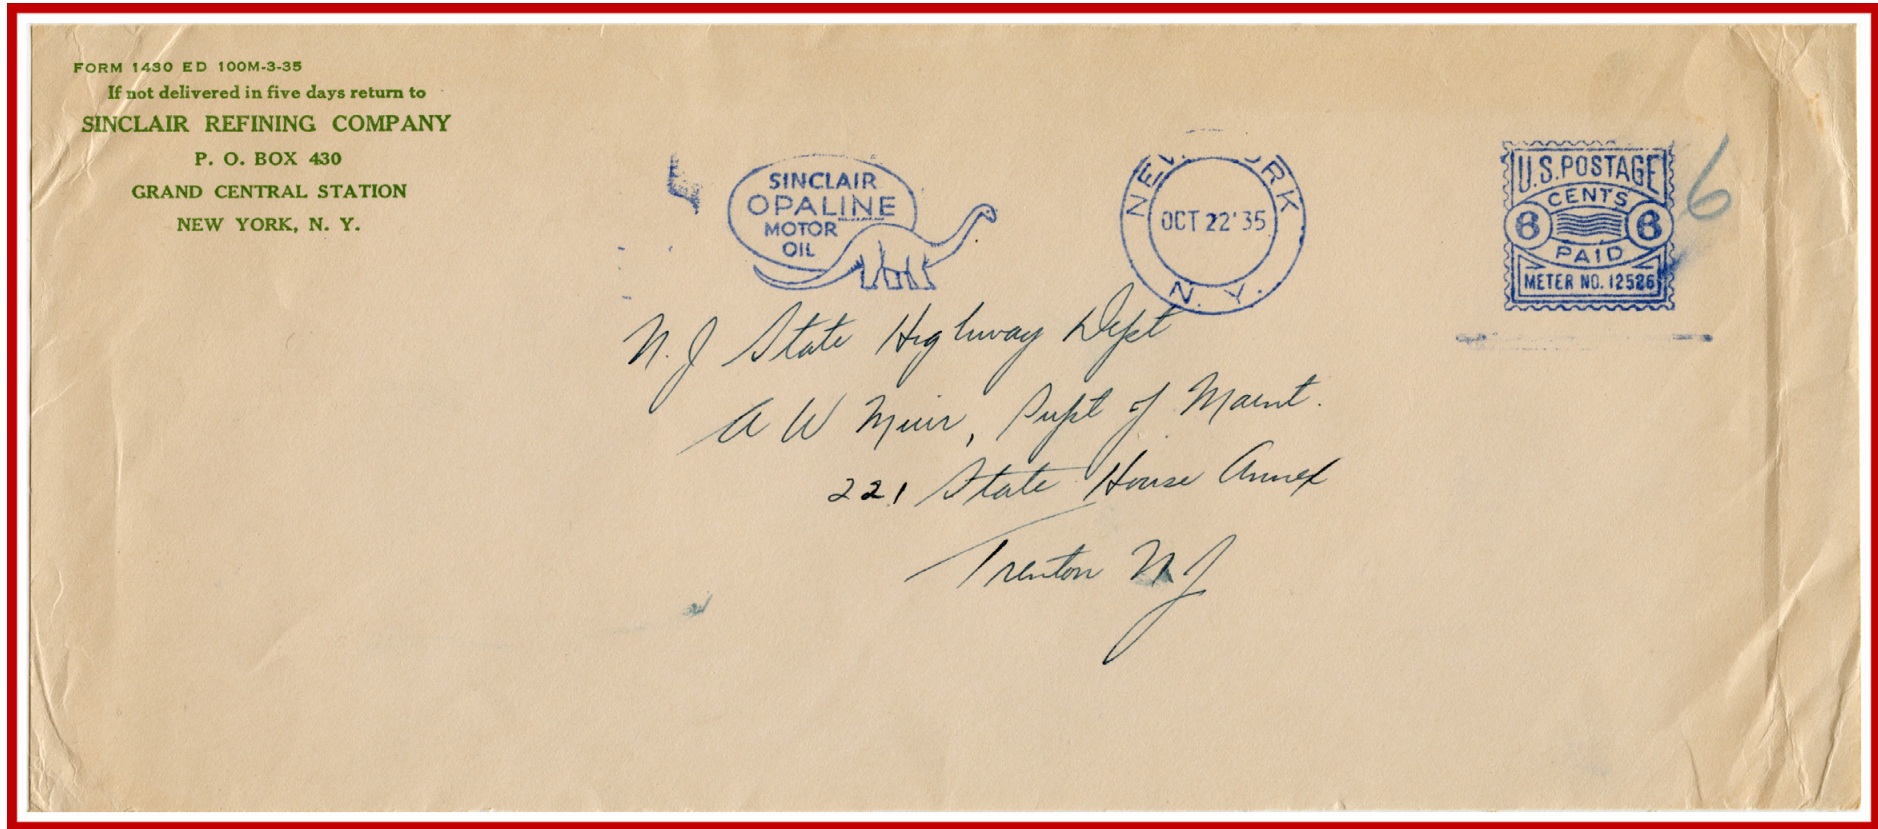 FORM 1430 ED 100M-3-35
If not delivered in five days return to
SINCLAIR REFINING COMPANY
P. O. BOX 430
GRAND CENTRAL STATION
NEW YORK, N. Y.
SINCLAIR
OPALINE
MOTOR
OIL
NEW YORK
OCT 22'35
N. Y.
U.S. POSTAGE
CENTS
6 6
PAID
METER NO. 12526
6
N. J State Highway Dept
A W Muir, Supt of Maint.
221 State House Annex
Trenton N J